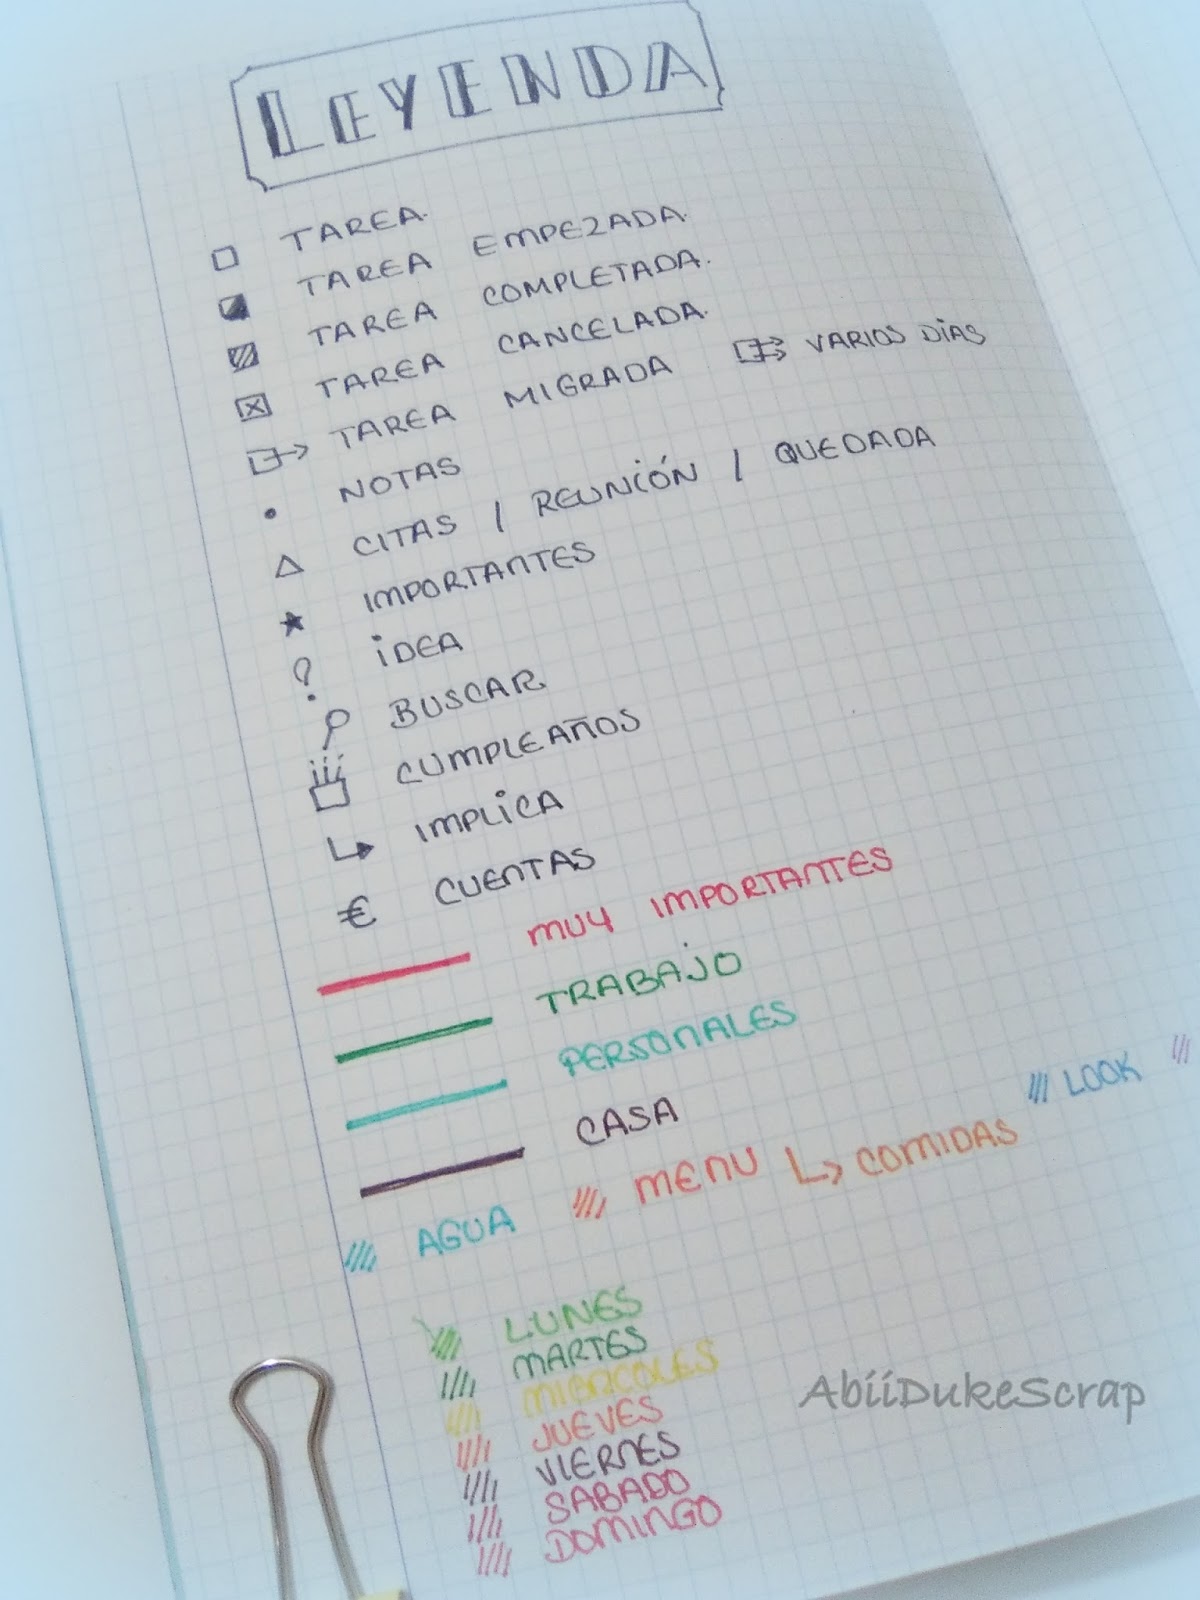 LEYENDA
TAREA.
TAREA EMPEZADA.
TAREA COMPLETADA.
TAREA CANCELADA.
TAREA MIGRADA VARIOS DÍAS
NOTAS
CITAS / REUNIÓN / QUEDADA
IMPORTANTES
? IDEA
BUSCAR
CUMPLEAÑOS
IMPLICA
€ CUENTAS
MUY IMPORTANTES
TRABAJO
PERSONALES
CASA
LOOK
MENU COMIDAS
AGUA
LUNES
MARTES
MIERCOLES
JUEVES
VIERNES
SABADO
DOMINGO
AbiiDukeScrap